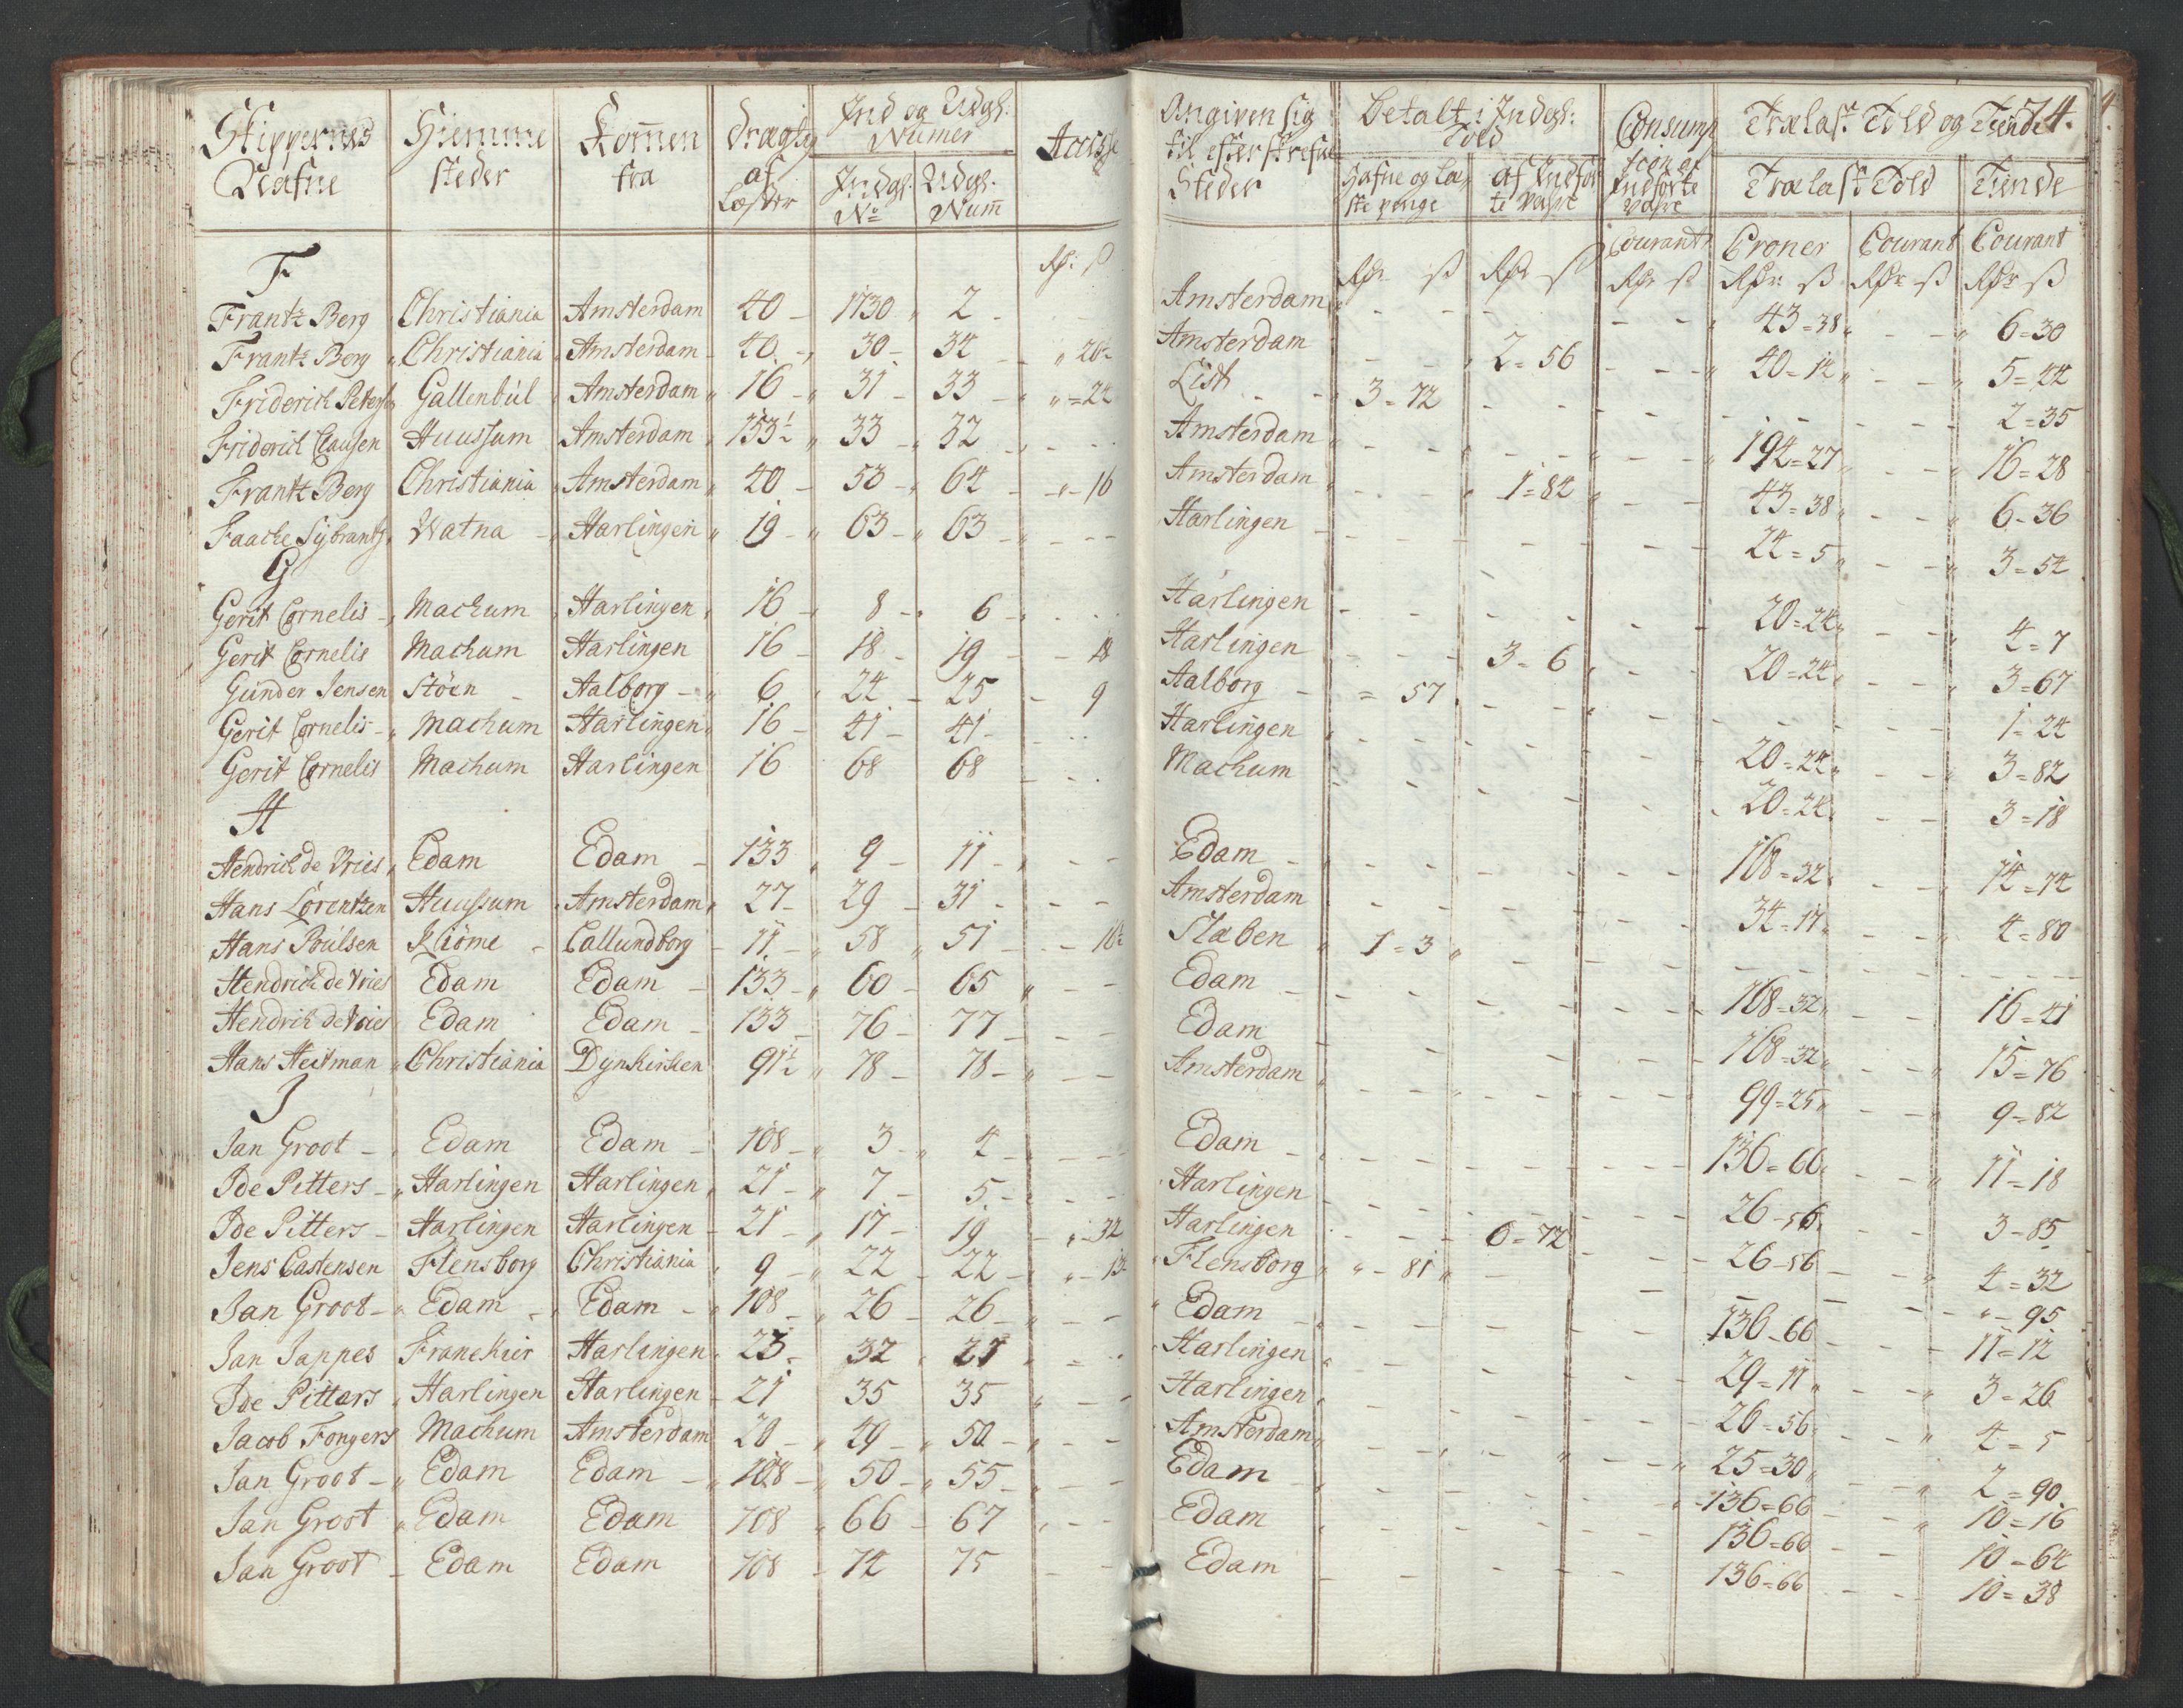 Skippernes Nafne | Hiemme steder | Kom̄en fra | Drægtig af Læster | Ind og Udgl: Numer | Accisse
Indgl: No | Udgl: Num̄
Rdr: ß
F
Frantz Berg | Christiania | Amsterdam | 40 | 1730 | 2
Frantz Berg | Christiania | Amsterdam | 40 | 30 | 34 | 20½
Friderich Peters | Gallenbúl | Amsterdam | 16 | 31 | 33 | 24
Friderich Clausen | Huussum | Amsterdam | 153½ | 33 | 32
Frantz Berg | Christiania | Amsterdam | 40 | 53 | 64 | 16
Faacke Sijbrants | Watna | Harlingen | 19 | 63 | 63
G
Gerit Cornelis | Machum | Harlingen | 16 | 8 | 6
Gerit Cornelis | Machum | Harlingen | 16 | 18 | 19 | 18
Gúnder Jensen | Stöen | Aalborg | 6 | 24 | 25 | 9
Gerit Cornelis | Machum | Harlingen | 16 | 41 | 41
Gerit Cornelis | Machum | Harlingen | 16 | 68 | 68
H
Hendrich de Vries | Edam | Edam | 133 | 9 | 11
Hans Lorentzen | Huussum | Amsterdam | 27 | 29 | 31
Hans Poúlsen | Kiöme | Callundborg | 11 | 58 | 51 | 10½
Hendrich de Vries | Edam | Edam | 133 | 60 | 65
Hendrich de Vries | Edam | Edam | 133 | 76 | 77
Hans Heitman | Christiania | Dynkirken | 91½ | 78 | 78
J
Jan Groot | Edam | Edam | 108 | 3 | 4
Jde Pitters | Harlingen | Harlingen | 21 | 7 | 5
Jde Pitters | Harlingen | Harlingen | 21 | 17 | 19 | 32
Jens Castensen | Flensborg | Christiania | 9 | 22 | 22 | 13
Jan Groot | Edam | Edam | 108 | 26 | 26
Jan Jappes | Franekier | Harlingen | 23 | 32 | 27
Jde Pitters | Harlingen | Harlingen | 21 | 35 | 35
Jacob Fongers | Machum | Amsterdam | 20 | 49 | 50
Jan Groot | Edam | Edam | 108 | 50 | 55
Jan Groot | Edam | Edam | 108 | 66 | 67
Jan Groot | Edam | Edam | 108 | 74 | 75
Angiven sig til efterskrefne Steder | Betalt i Indgl: Told | Consumption af Indförte Vahre | Trælast Told og Tiende | 4.
Hafne og Læste penge | af Indförte Vahre | Trælast Told | Tiende
Courant | Croner | Courant | Courant
Rdr ß | Rdr ß | Rdr ß | Rdr ß | Rdr ß | Rdr ß
Amsterdam | 43=38 | 6=30
Amsterdam | 2=56 | 40=14 | 5=44
List | 3=72 | 2=35
Amsterdam | 194=27 | 16=28
Amsterdam | 1=84 | 43=38 | 6=36
Harlingen | 24=5 | 3=54
Harlingen | 20=24 | 4=7
Harlingen | 3=6 | 20=24 | 3=67
Aalborg | =57 | 1=24
Harlingen | 20=24 | 3=82
Machum | 20=24 | 3=18
Edam | 168=32 | 14=74
Amsterdam | 34=17 | 4=80
Slaben | 1=3
Edam | 168=32 | 16=41
Edam | 168=32 | 15=76
Amsterdam | 99=25 | 9=82
Edam | 136=66 | 11=18
Harlingen | 26=56 | 3=85
Harlingen | 6=72 | 26=56 | 4=32
Flensborg | 81 | 95
Edam | 136=66 | 11=12
Harlingen | 29=11 | 3=26
Harlingen | 26=56 | 4=5
Amsterdam | 25=30 | 2=90
Edam | 136=66 | 10=16
Edam | 136=66 | 10=64
Edam | 136=66 | 10=38